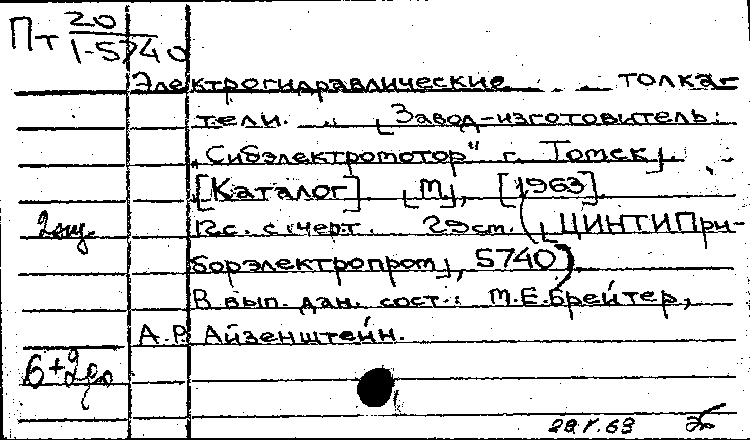 Пт 20
1-5740
Электрогидравлические толка-
тели. [Завод-изготовитель:
„Сибэлектромотор" г. Томск].
[Каталог] [М], [1963]
12с. с черт. 29см. (ЦИНТИПри-
борэлектропром, 5740).
В вып. дан. сост.: М.Е.Брейтер,
А.Р. Айзенштейн.
6+2
29.V.63